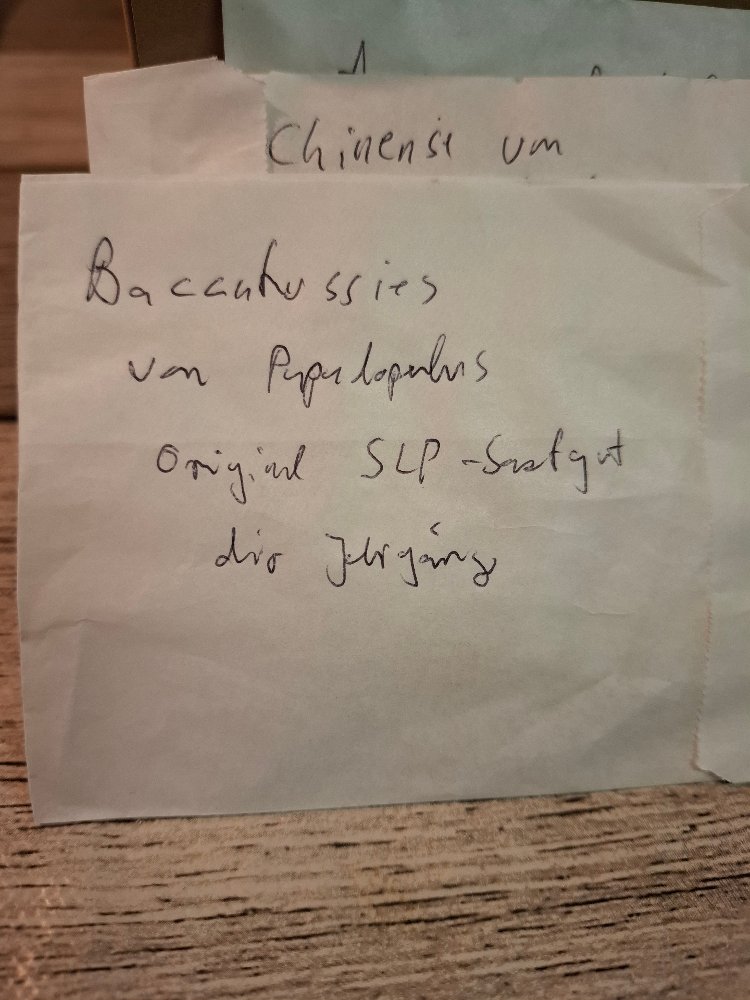 Chinense von
Baccatussies
von Papadopalus
Original SLP-Saatgut
div Jahrgäng